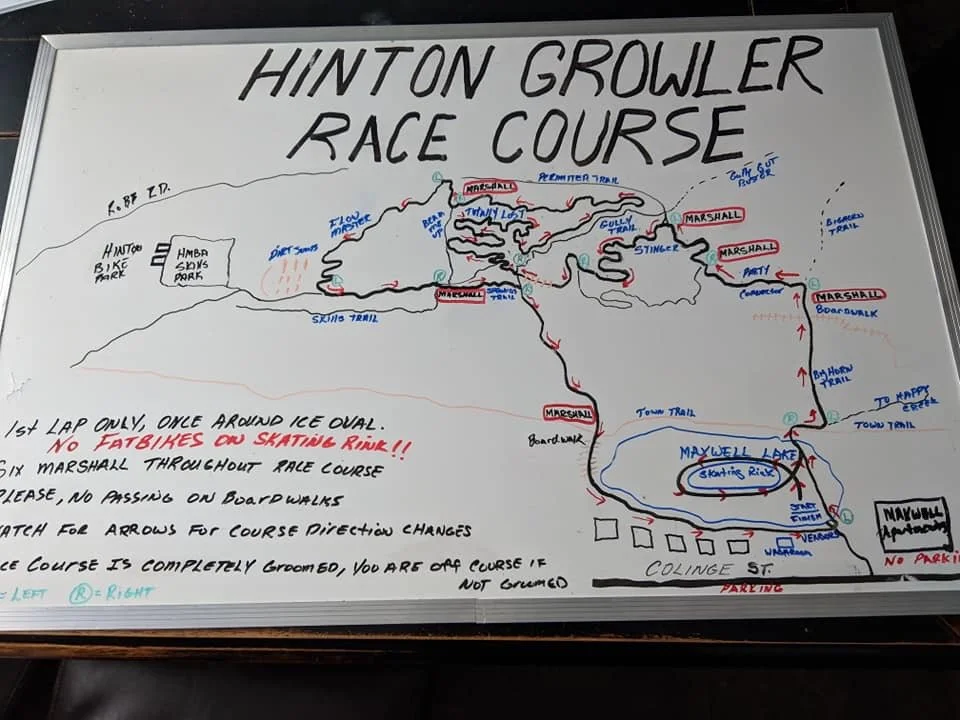 HINTON GROWLER
RACE COURSE
ROBB RD.
HINTON
BIKE
PARK
HMBA
SKILLS
PARK
DIRT JUMPS
FLOW
MASTER
SKILLS TRAIL
L
BEAM
ME
UP
MARSHALL
PERIMITER TRAIL
TOTALLY LOST
GULLY
TRAIL
STINGER
L
MARSHALL
GULLY GUT
BUSTER
MARSHALL
R
PARTY
CONNECTOR
BIGHORN
TRAIL
L
MARSHALL
BOARDWALK
R
MARSHALL
TRAIL
R
BIGHORN
TRAIL
TO HAPPY
CREEK
TOWN TRAIL
R
L
TOWN TRAIL
MARSHALL
BOARDWALK
MAXWELL LAKE
SKATING RINK
START
FINISH
L
VENDORS
WADAROOM
COLINGE ST.
PARKING
MAXWELL
Apartments
NO PARKI
1st LAP ONLY, ONCE AROUND ICE OVAL.
NO FATBIKES ON SKATING RINK!!
SIX MARSHALL THROUGHOUT RACE COURSE
PLEASE, NO PASSING ON BOARDWALKS
ATCH FOR ARROWS FOR COURSE DIRECTION CHANGES
CE COURSE IS COMPLETELY GROOMED, YOU ARE OFF COURSE IF
NOT GROOMED
= LEFT R = RIGHT